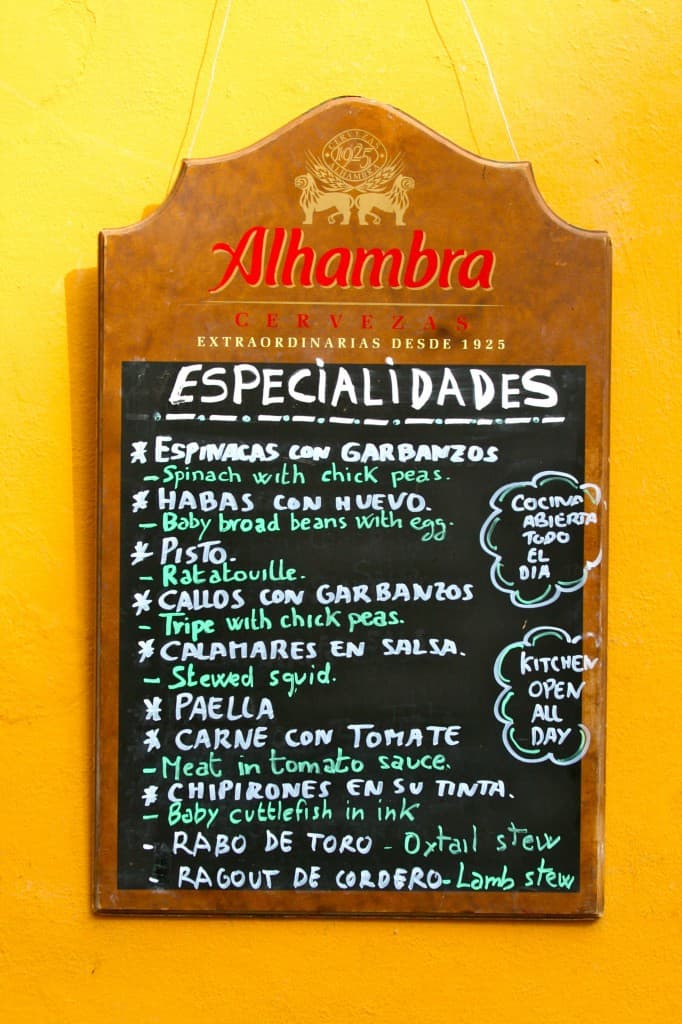 CERVEZAS
1925
ALHAMBRA
Alhambra
CERVEZAS
EXTRAORDINARIAS DESDE 1925
ESPECIALIDADES
* ESPINACAS CON GARBANZOS
- Spinach with chick peas.
* HABAS CON HUEVO.
- Baby broad beans with egg.
* PISTO.
- Ratatouille.
* CALLOS CON GARBANZOS
- Tripe with chick peas.
* CALAMARES EN SALSA.
- Stewed squid.
* PAELLA
* CARNE CON TOMATE
- Meat in tomato sauce.
* CHIPIRONES EN SU TINTA.
- Baby cuttlefish in ink
- RABO DE TORO - Oxtail stew
- RAGOUT DE CORDERO - Lamb stew
COCINA
ABIERTA
TODO
EL
DIA
KITCHEN
OPEN
ALL
DAY